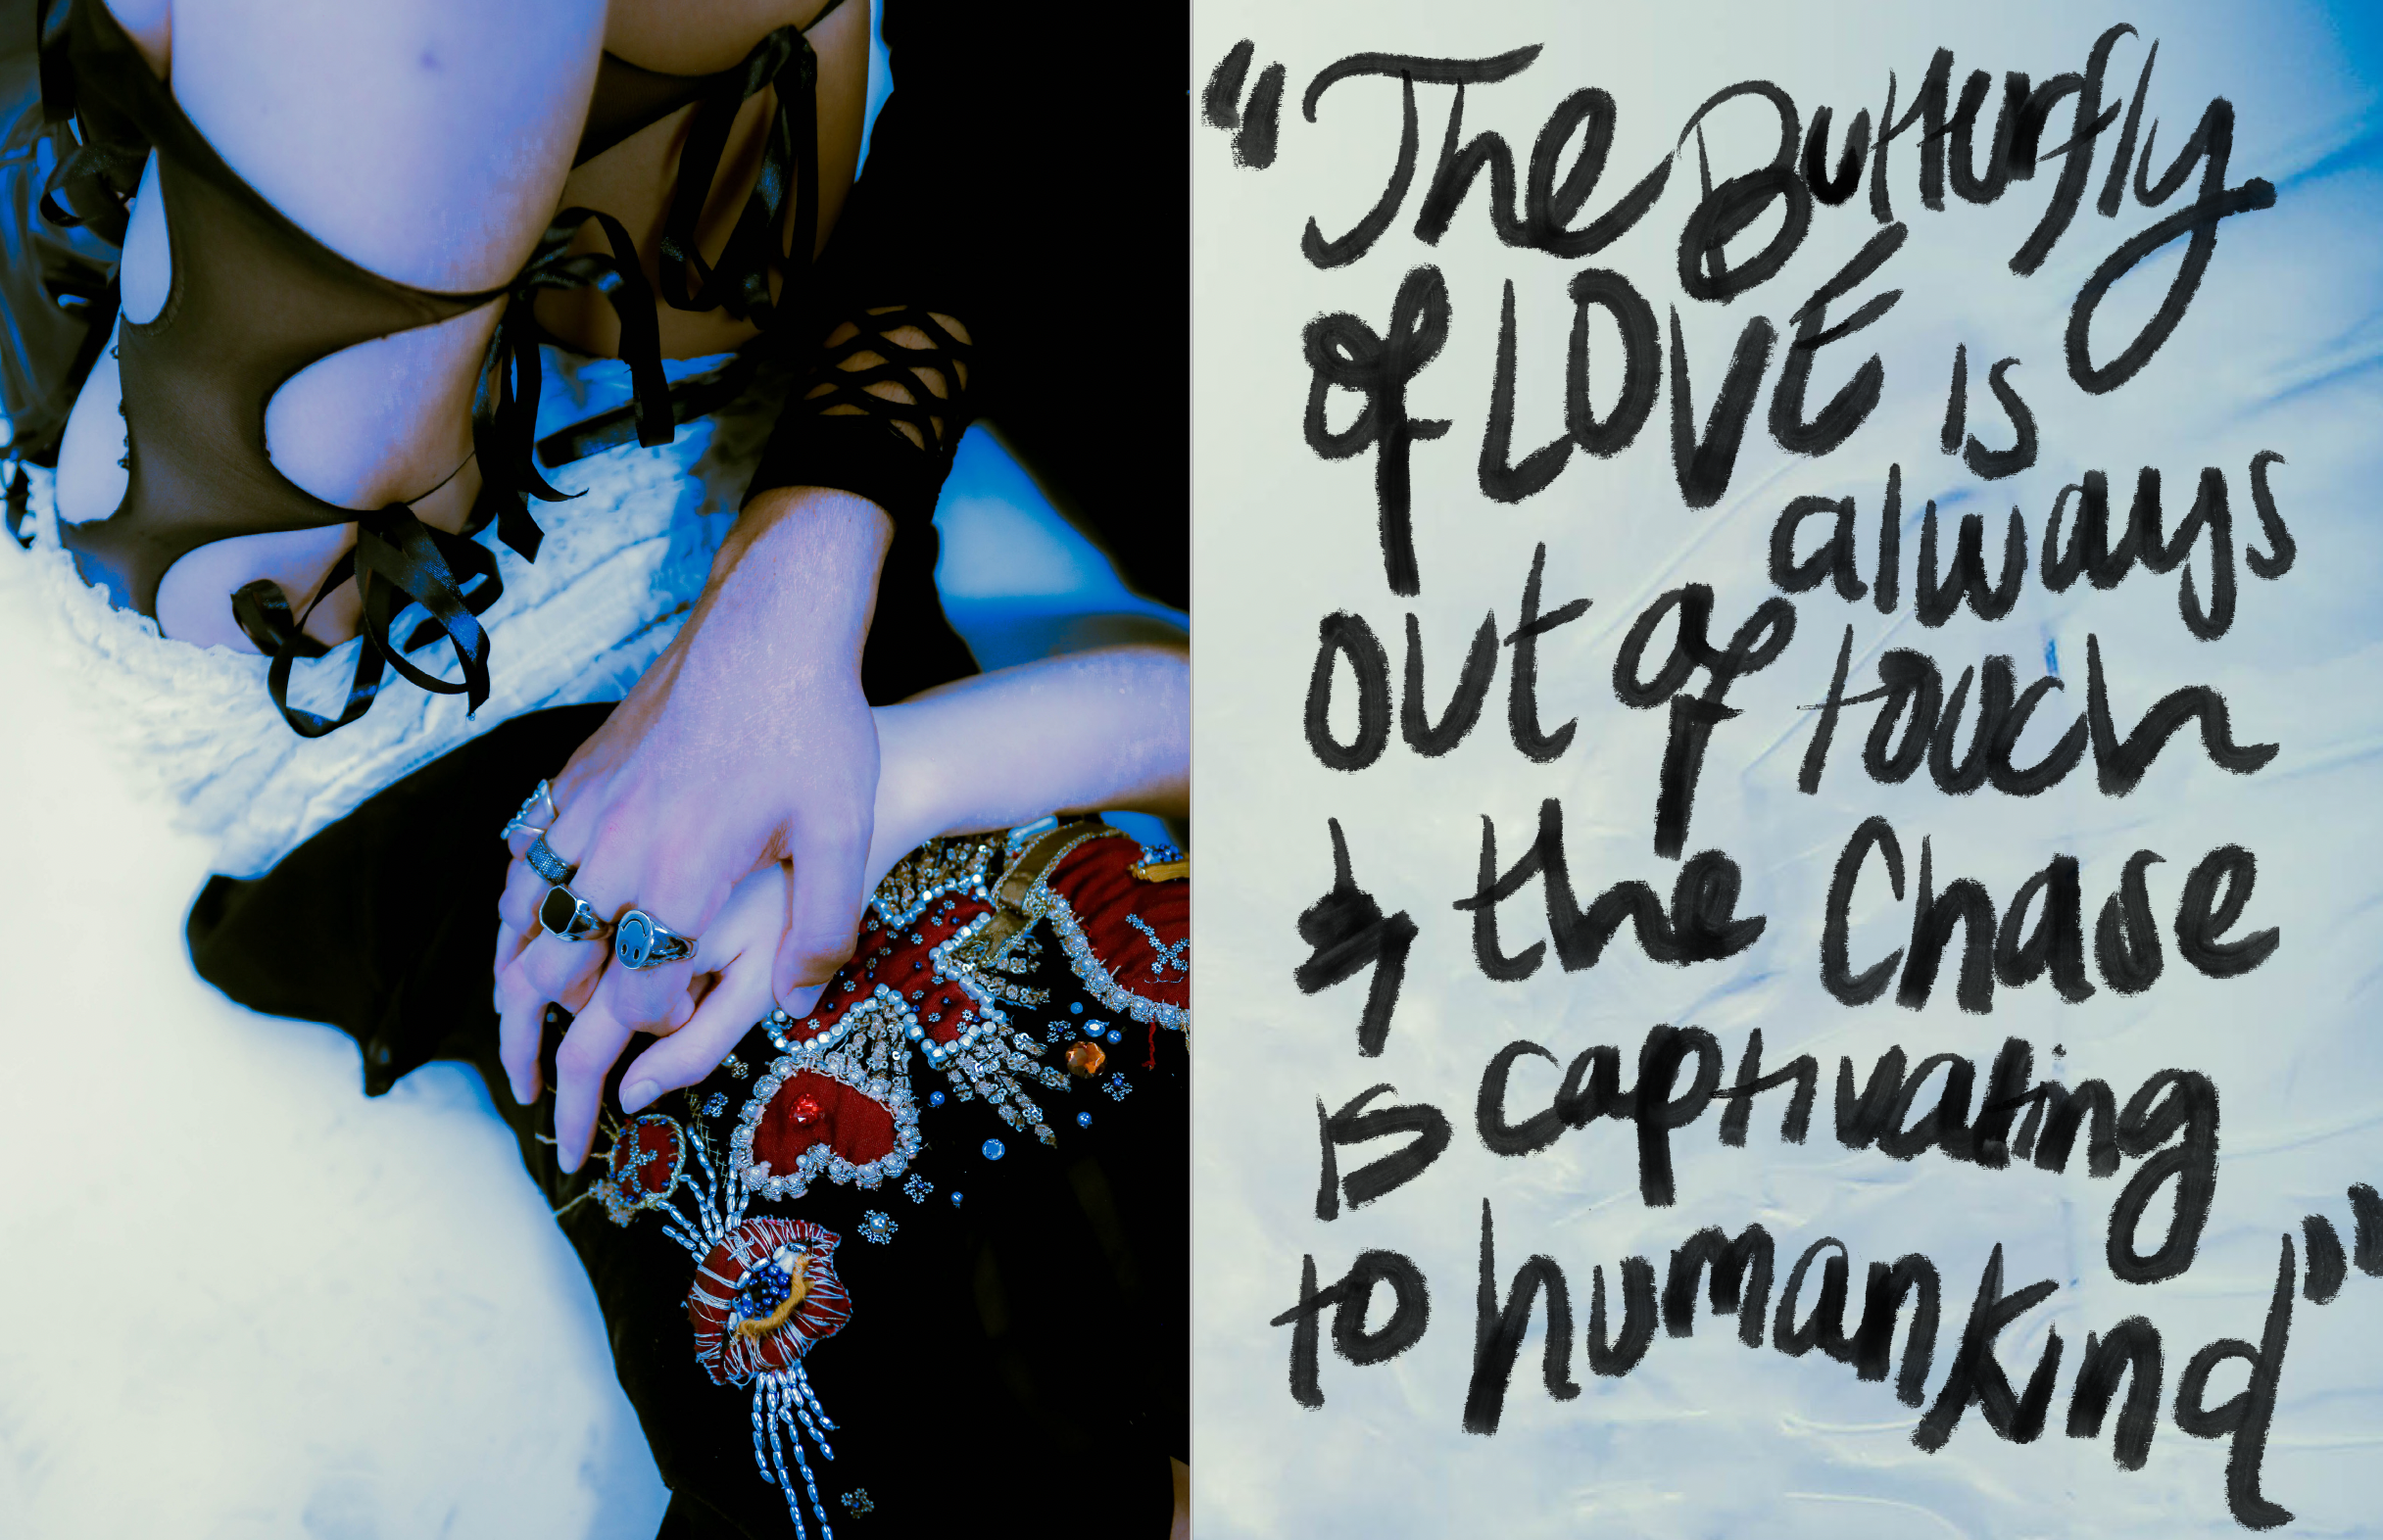 "The Butterfly
of LOVE is
always
out of touch
& the Chase
is captivating
to humankind"